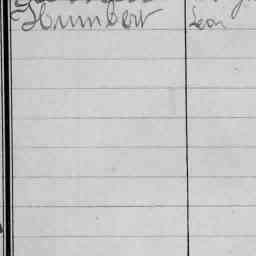 Humbert Léon